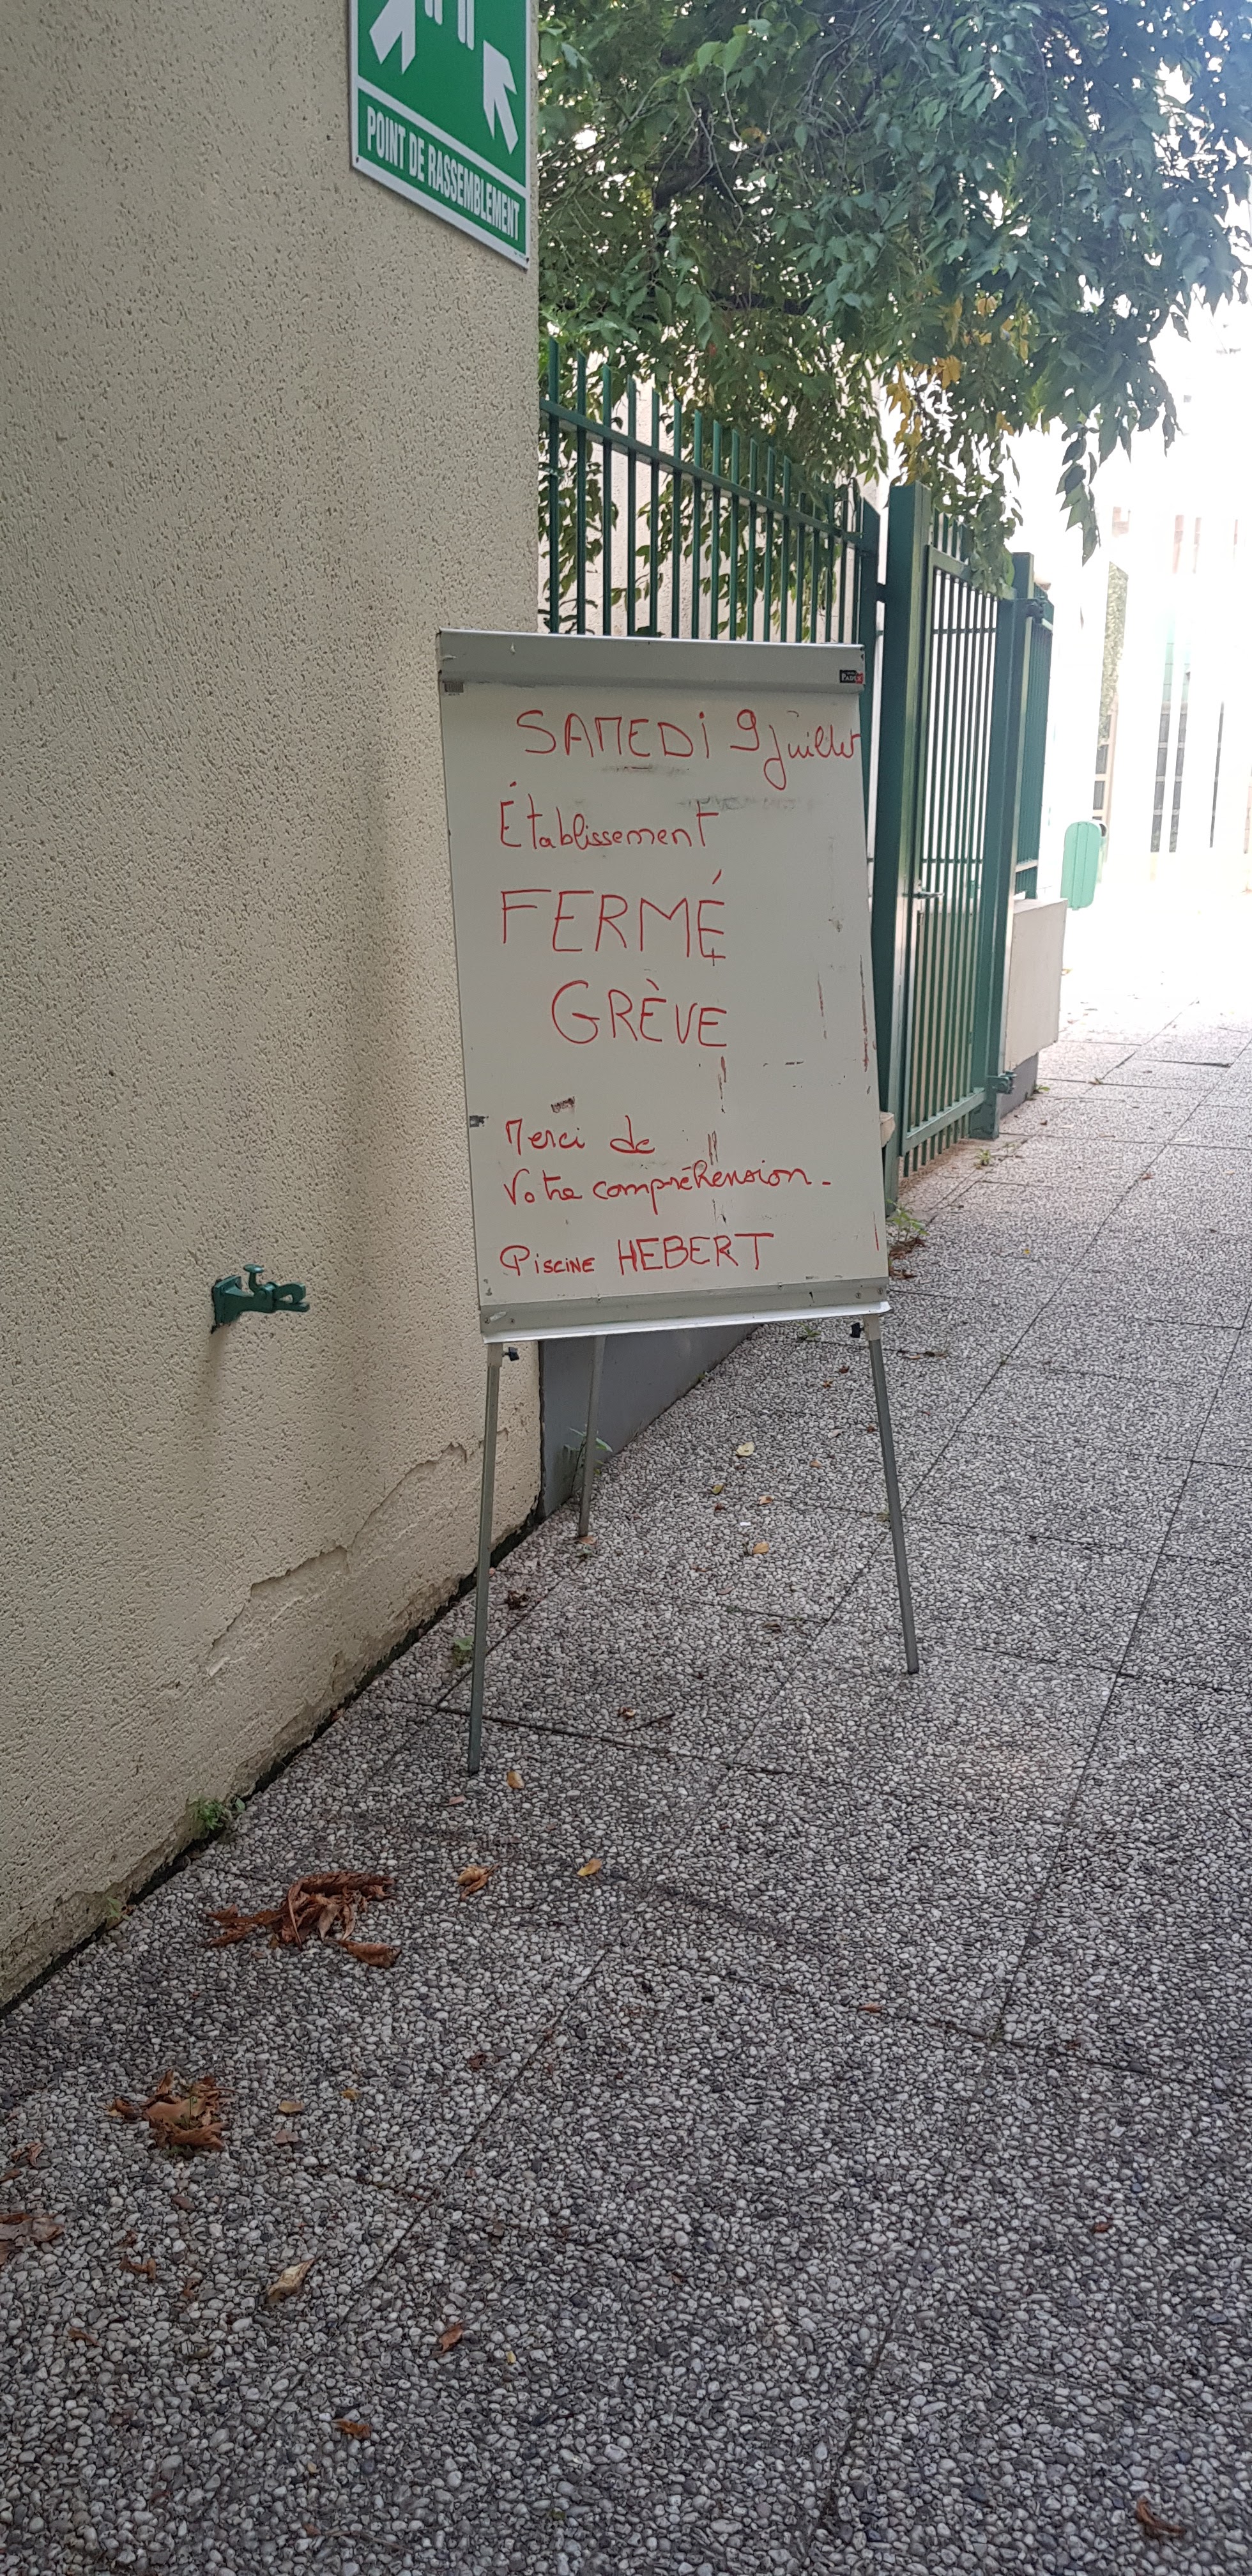 POINT DE RASSEMBLEMENT
SAMEDI 9 juillet
Établissement
FERMÉ
GRÈVE
Merci de
votre compréhension.
Piscine HEBERT